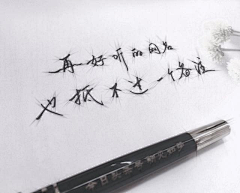 再好听的网名
也抵不过一个备注